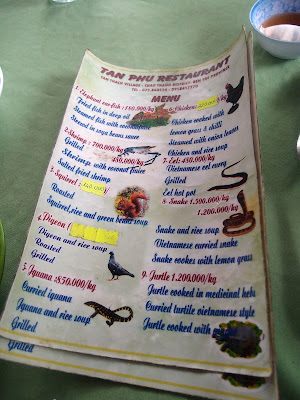 TAN PHU RESTAURANT
TAN THACH VILLAGE - CHAU THANH DISTRICT, BEN TRE PROVINCE
MENU
1-Elephant ear fish : 180.000/kg
Fried fish in deep oil
Steamed fish with
Steamed in soya beans sauce
2-Shrimp : 700.000/kg
Grilled 450.000/kg
Shrimps with coconut juice
Salted fried shrimp
3-Squirrel :
Roasted
Squirrel,rice and green beans soup
4-Pigeon
Pigeon and rice soup
Roasted
Grilled
5-Iguana :850.000/kg
Curried iguana
Iguana and rice soup
Grilled
6-Chicken
Chicken cooked with
lemon grass & chili
Steamed with onion leaves
Chicken and rice soup
7-Eel: 480.000/kg
Vietnamese eel curry
Grilled
Eel hot pot
8-Snake 1.500.000/kg
1.200.000/kg
Snake and rice soup
Vietnamese curried snake
Snake cookes with lemon grass
9-Turtle 1.200.000/kg
Turtle cooked in medicinal hebs
Curried turtile vietnamese style
Turtle cooked with
Grilled